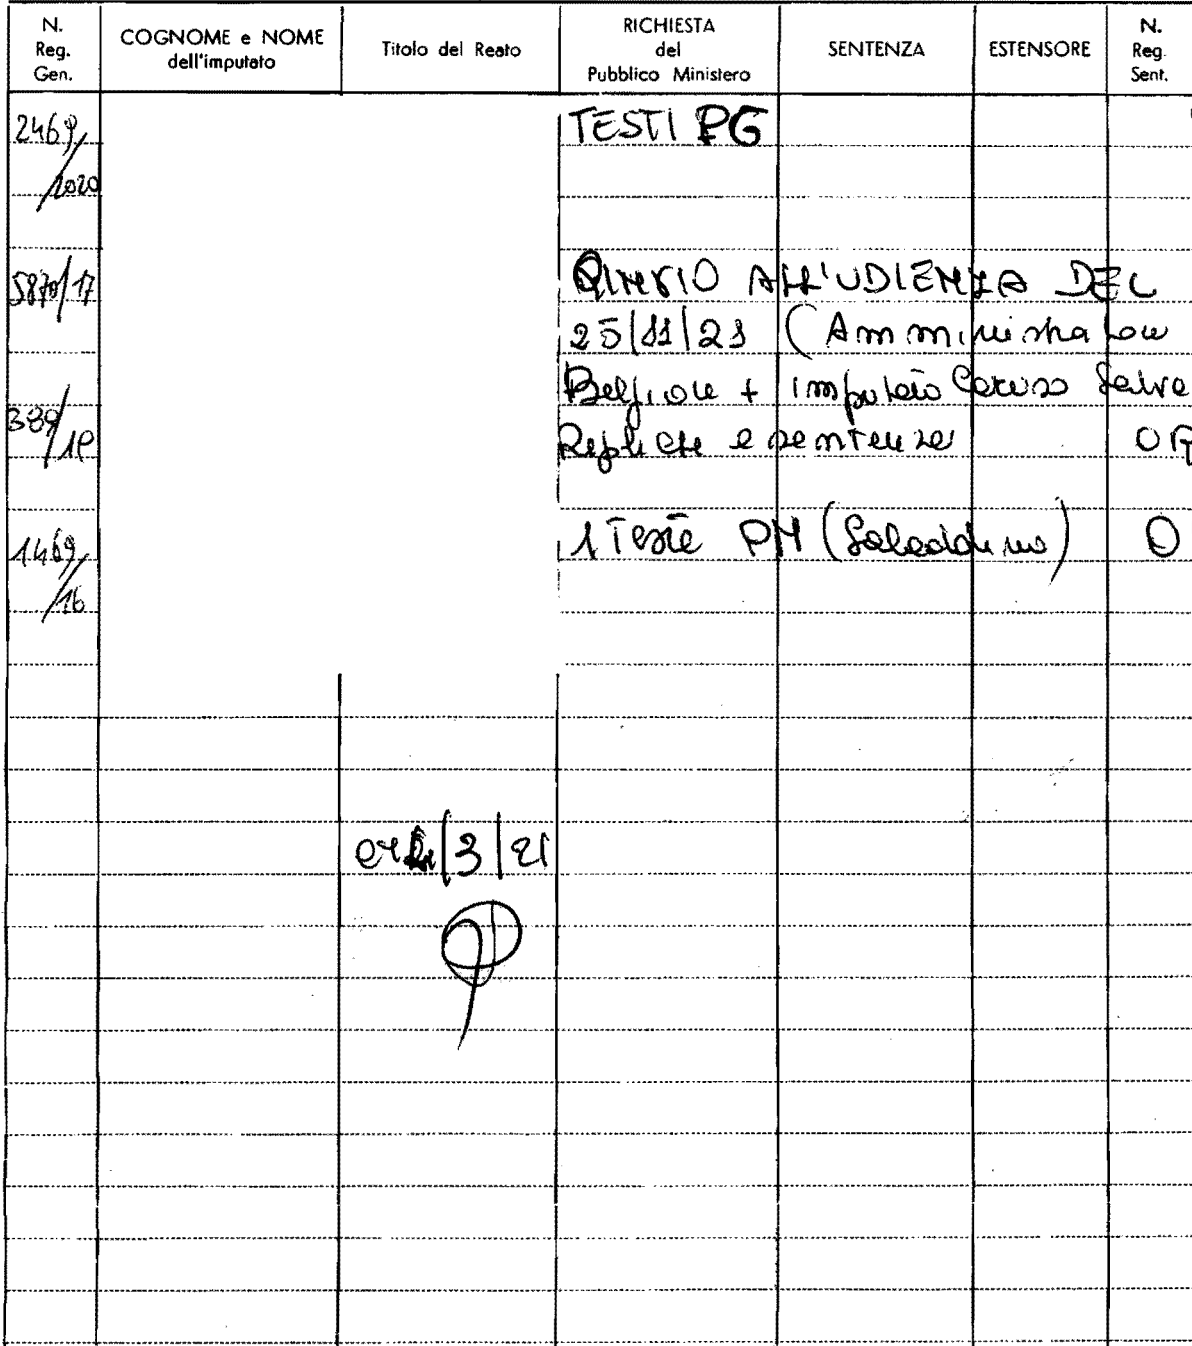 N. Reg. Gen.
COGNOME e NOME dell'imputato
Titolo del Reato
RICHIESTA del Pubblico Ministero
SENTENZA
ESTENSORE
N. Reg. Sent.
2469/2020
TESTI PG
5870/17
RINVIO ALL'UDIENZA DEL
25/11/21 (Amministratore
Belfiore + imputato Caruso Salva
389/18
Repliche e sentenza
1469/16
1 Teste PM (Saladdino)
/3/21